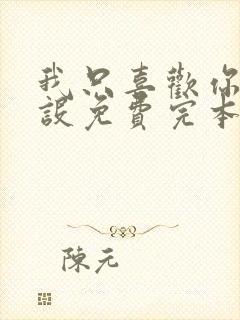 我只喜歡你
設免費完本
陳元